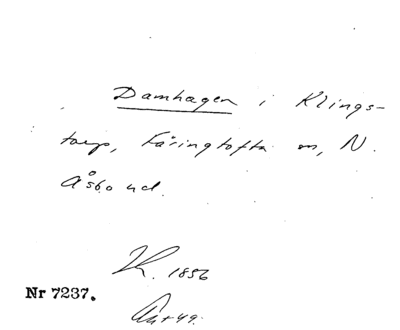 Damhagen i Klings-
torp, Färingtofta sn, N.
Åsbo hd.
K. 1856
Nr 7237.